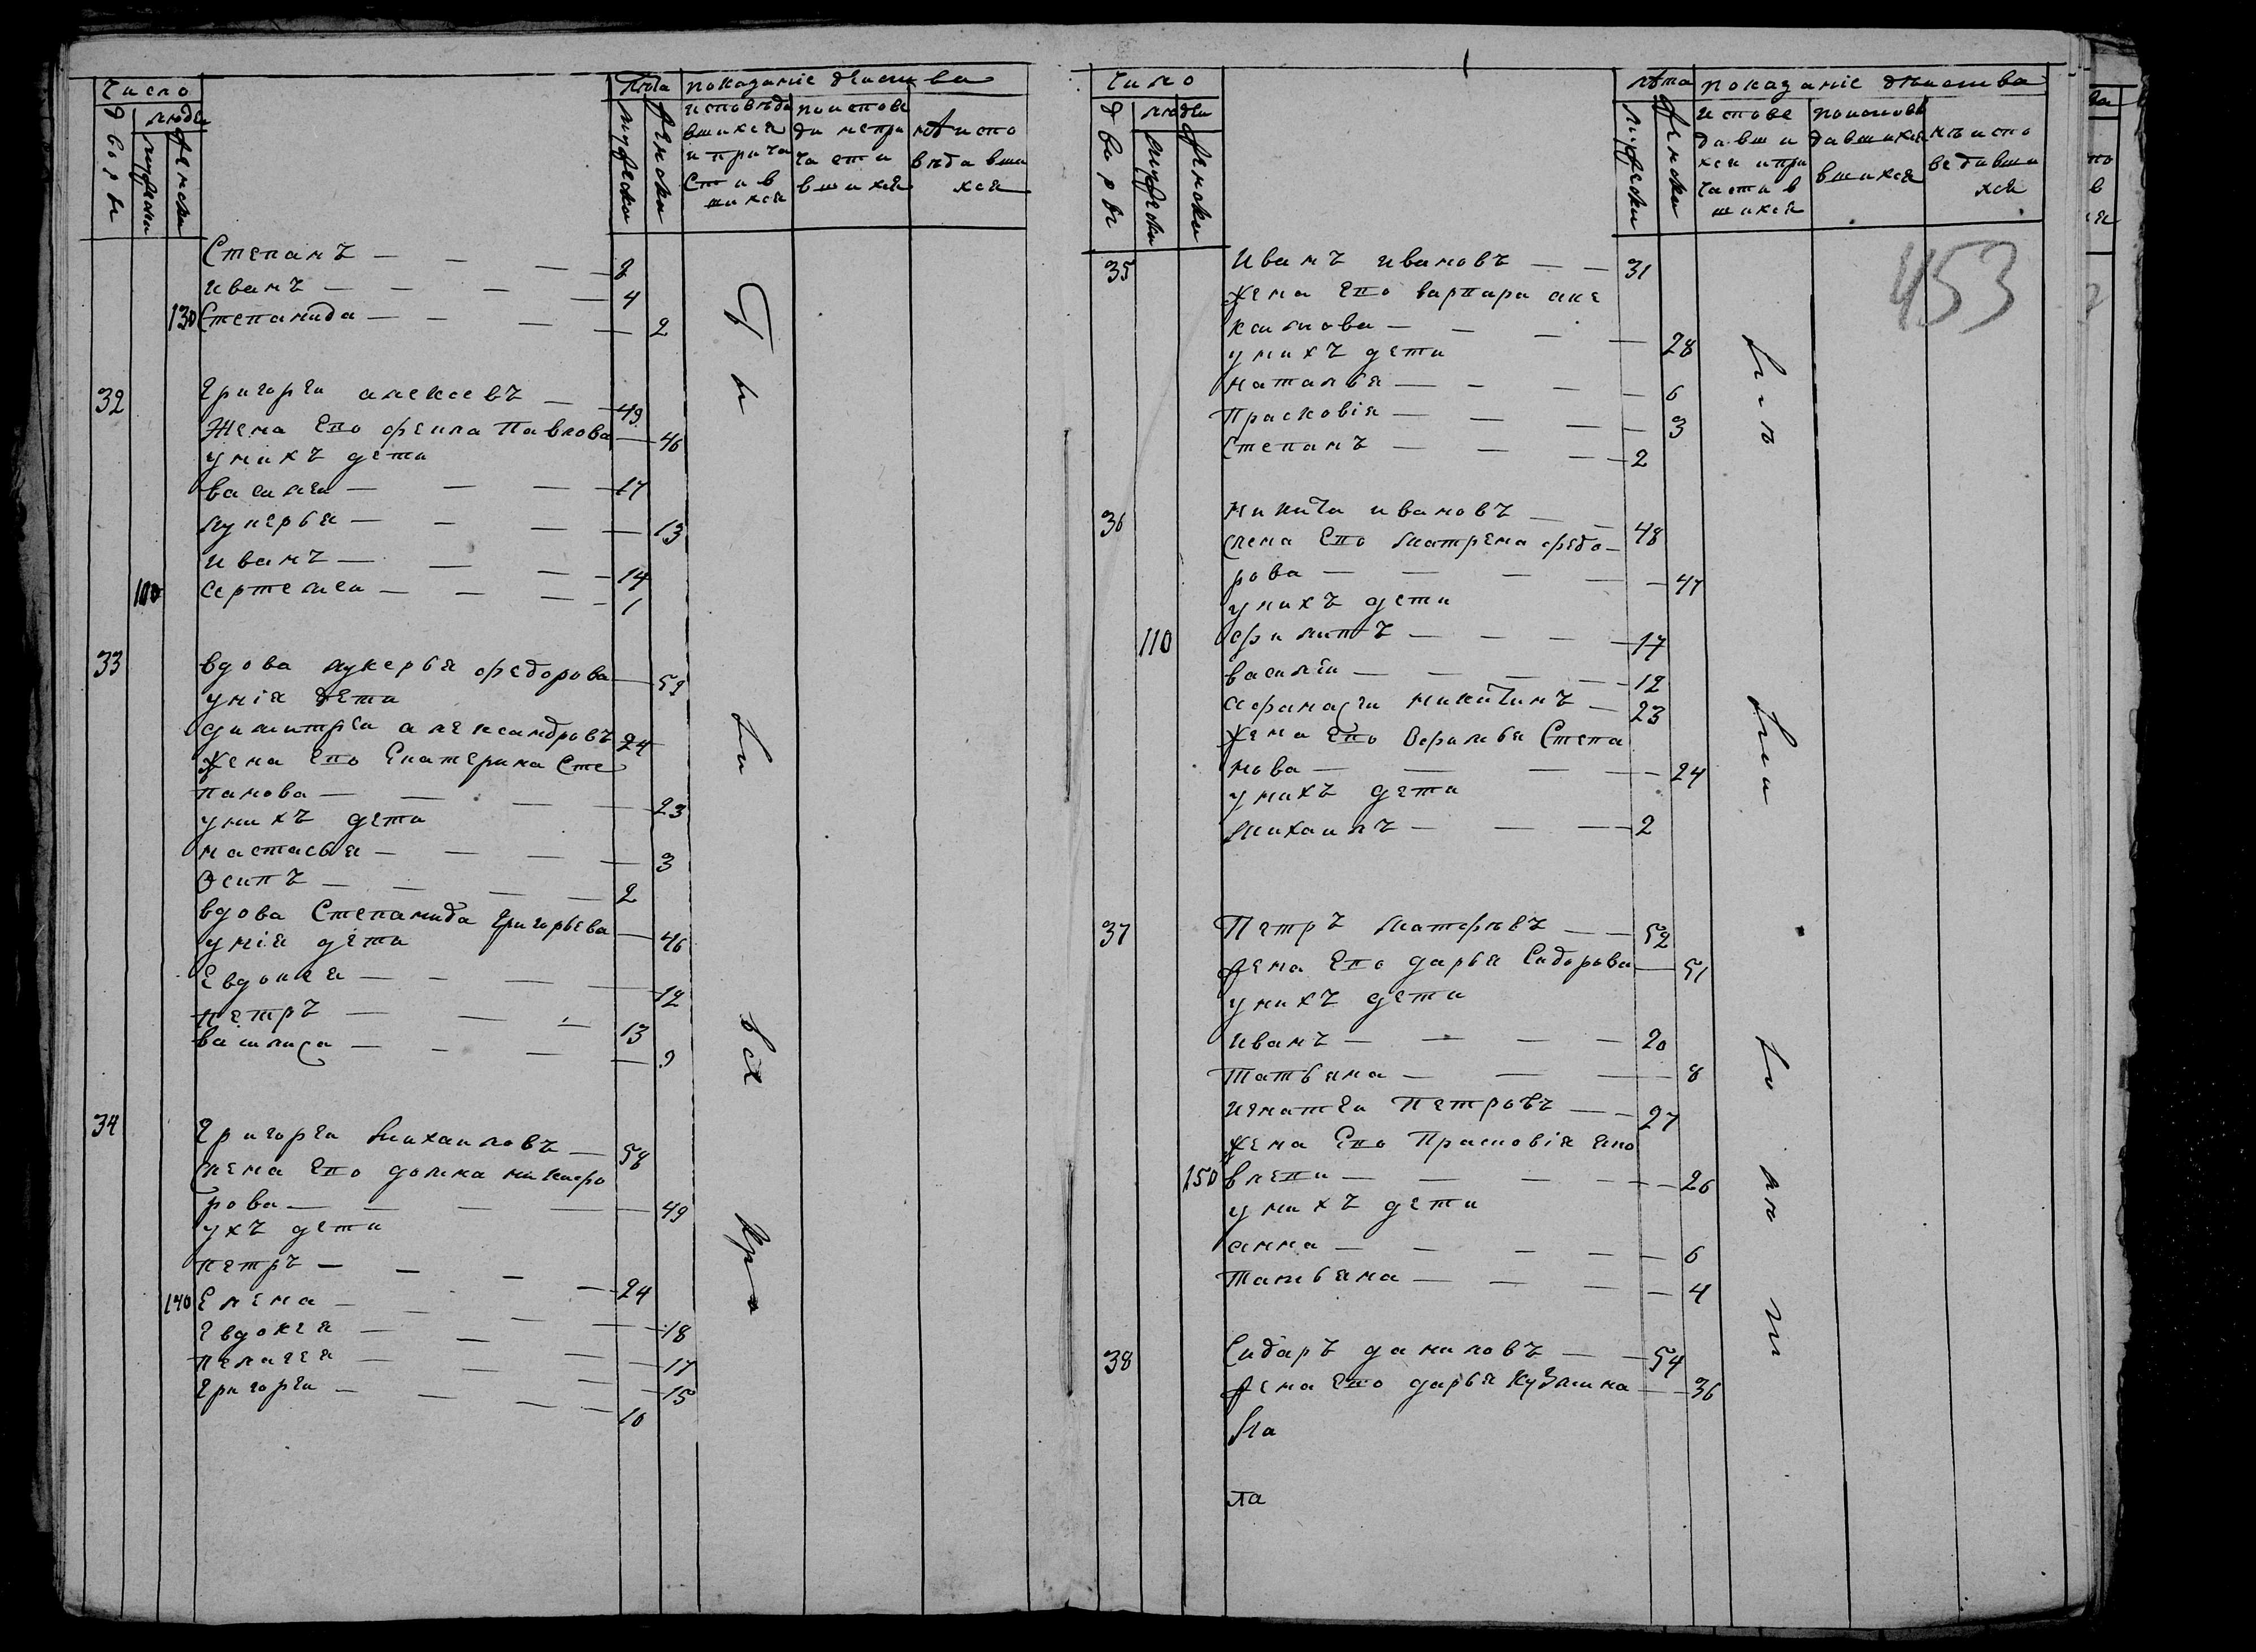 Число
лѣта показаніе дѣиства
дворы
людеи
мужески
женски
мужески
женски
исповѣда
вшихся
и прича
стив
шихся
поиспове
ди непри
части
вшихся
не испо
вѣдавши
хся
Степанъ — — — — 8
иванъ — — — — 4
130 Степанида — — — — 2
32 Григореи алексевъ — — 49
Жена Его феκла Павлова — 46
униxъ дети
василеи — — — — 17
лукерья — — — — 13
иванъ — — — — 14
100 Сертелеи — — — — 1
33 вдова лукерья федорова — 59
унія дети
димитреи александровъ 24
жена Его Екатерина Сте
панова — — — — 23
унихъ дети
настасья — — — — 3
Осипъ — — — — 2
вдова Степанида Григорьева — 46
унія дети
Евдокея — — — — 12
петръ — — — 13
василиса — — — — 9
34 Григореи михаиловъ — 58
жена Его домна никифо
рова — — — — 49
ухъ дети
петръ — — — — 24
140 Елена — — — — 18
Евдокея — — — — 17
пелагея — — — — 15
Григореи — — — — 10
число
лѣта показаніе дѣиства
дворы
людеи
мужески
женски
мужески
женски
испове
давши
хся и при
частив
шихся
поиспове
давшихся
вшихся
не испо
ведавши
хся
453
35 Иванъ ивановъ — — 31
жена Его варвара аве
— — — 28
унихъ дети
наталья — — — — 6
Прасковія — — — — 3
Степанъ — — — — 2
36 Никита ивановъ — — 48
жена Его матрена федо-
рова — — — — 47
унихъ дети
110 филипъ — — — — 17
василеи — — — — 12
афанасеи никитинъ — 23
жена Его Степа
нова — — — — 24
унихъ дети
михаилъ — — — 2
37 Петръ матфѣвъ — — 52
жена Его дарья Сидорова — 51
унихъ дети
иванъ — — — — 20
Татьяна — — — 8
игнатеи Петровъ — — 27
жена Его Прасковія яко
150 влева — — — — 26
унихъ дети
анна — — — — 6
Татьяна — — — — 4
38 Сидаръ даниловъ — — 54
жена Его дарья Кузмина — 36
ла